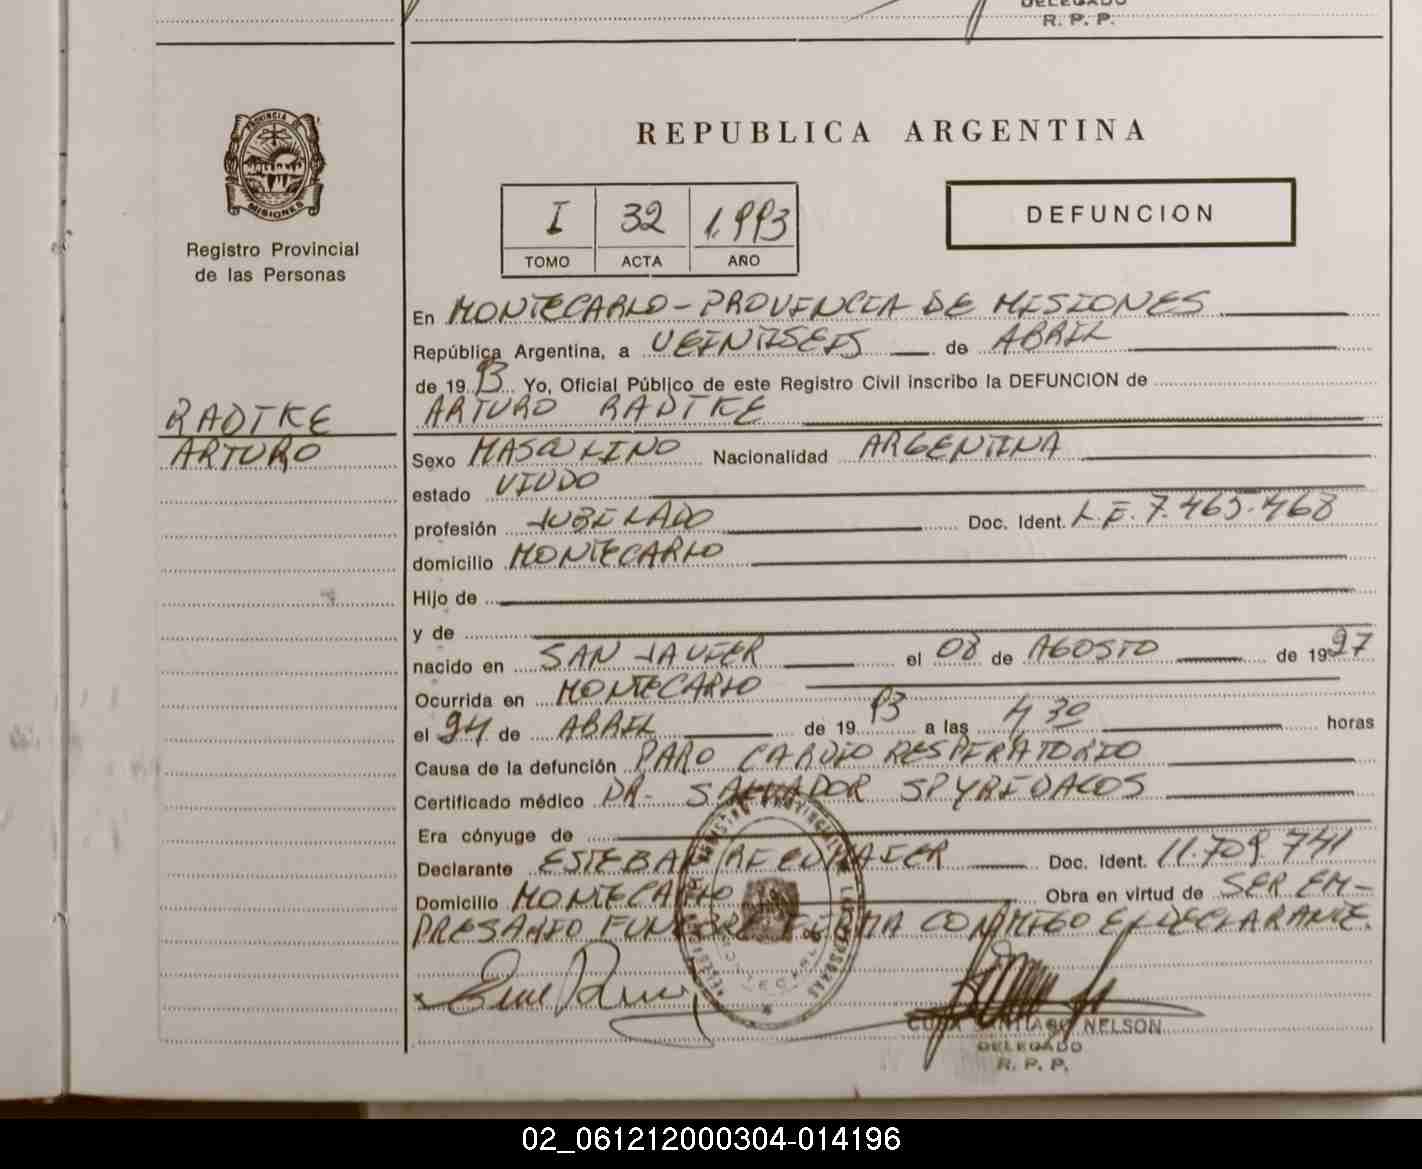 DELEGADO
R. P. P.
PROVINCIA DE
MISIONES
Registro Provincial
de las Personas
REPUBLICA ARGENTINA
I 32 1.993
TOMO ACTA AÑO
DEFUNCION
En MONTECARLO - PROVINCIA DE MISIONES
República Argentina, a VEINTISEIS de ABRIL
de 1993 Yo, Oficial Público de este Registro Civil inscribo la DEFUNCION de
RADTKE
ARTURO
ARTURO RADTKE
Sexo MASCULINO Nacionalidad ARGENTINA
estado VIUDO
profesión JUBILADO Doc. Ident. L.E. 7.465.468
domicilio MONTECARLO
Hijo de
y de
nacido en SAN JAVIER el 08 de AGOSTO de 1927
Ocurrida en MONTECARLO
el 24 de ABRIL de 1993 a las 4 30 horas
Causa de la defunción PARO CARDIO RESPIRATORIO
Certificado médico DR. SALVADOR SPYRIDACOS
Era cónyuge de
Declarante ESTEBAN Doc. Ident. 11.709.741
Domicilio MONTECARLO Obra en virtud de SER EM-
PRESARIO FUNEBRE FIRMA CONMIGO EL DECLARANTE.
SANTIAGO NELSON
DELEGADO
R. P. P.
02_061212000304-014196